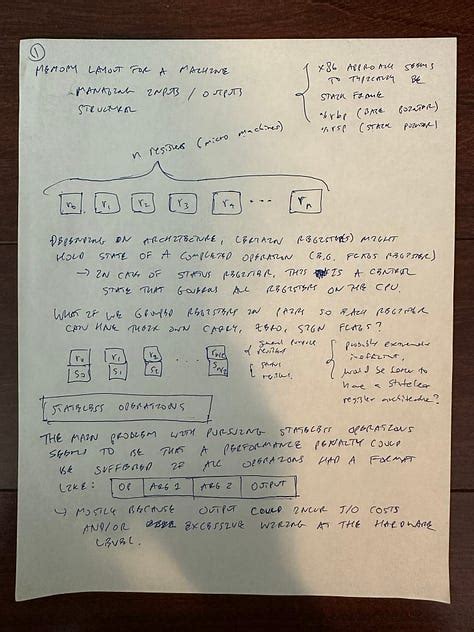 ①
MEMORY LAYOUT FOR A MACHINE
MANAGING INPUTS / OUTPUTS
STRUCTURAL
x86 APPROACH SEEMS
TO TYPICALLY BE
STACK FRAME
%rbp (BASE POINTER)
%rsp (STACK POINTER)
n registers (micro machines)
r0 r1 r2 r3 r4 ... rn
DEPENDING ON ARCHITECTURE, CERTAIN REGISTER(S) MIGHT
HOLD STATE OF A COMPLETED OPERATION (E.G. FLAGS REGISTER)
→ IN CASE OF STATUS REGISTER, THIS IS A CENTRAL
STATE THAT GOVERNS ALL REGISTERS ON THE CPU.
WHAT IF WE GROUPED REGISTERS IN PAIRS SO EACH REGISTER
CAN HAVE THEIR OWN CARRY, ZERO, SIGN FLAGS?
r0 r1 r2 ...
s0 s1 s2
general purpose
registers
status
registers
possibly extremely
inefficient,
would be better to
have a stateless
register architecture?
STATELESS OPERATIONS
THE MAIN PROBLEM WITH PURSUING STATELESS OPERATIONS
SEEMS TO BE THAT A PERFORMANCE PENALTY COULD
BE SUFFERED IF ALL OPERATIONS HAD A FORMAT
LIKE: OP ARG 1 ARG 2 OUTPUT
→ MOSTLY BECAUSE OUTPUT COULD INCUR I/O COSTS
AND/OR EXCESSIVE WIRING AT THE HARDWARE
LEVEL.